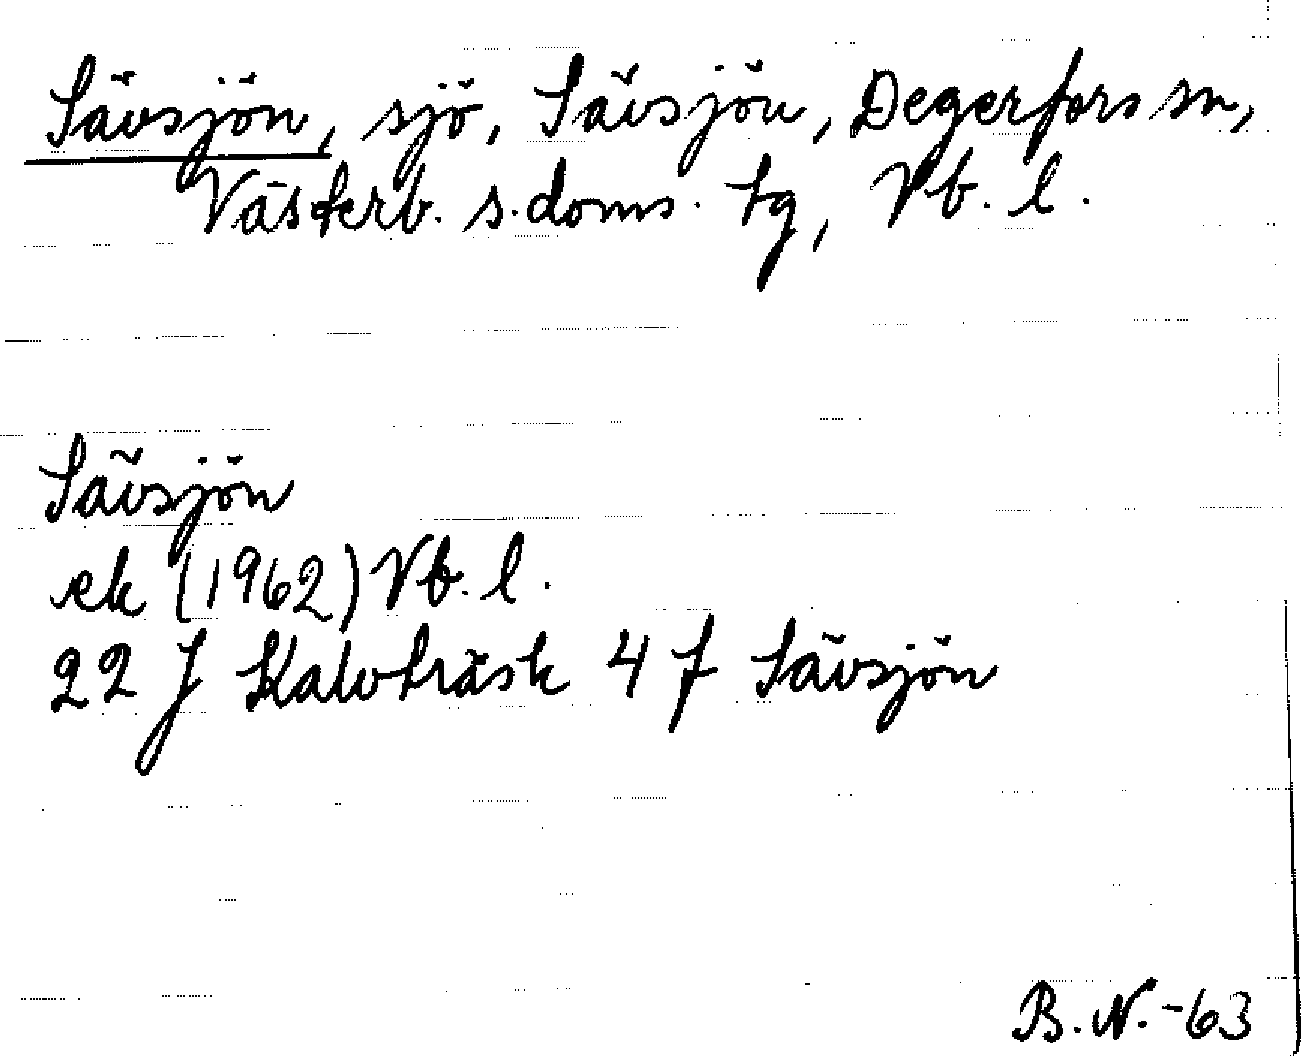 Sävsjön, sjö, Sävsjön, Degerfors sn,
Västerb. s. doms. tg, Vb. l.
Sävsjön
ek (1962) Vb. l.
22 J Kalvträsk 4 f Sävsjön
B. N. -63